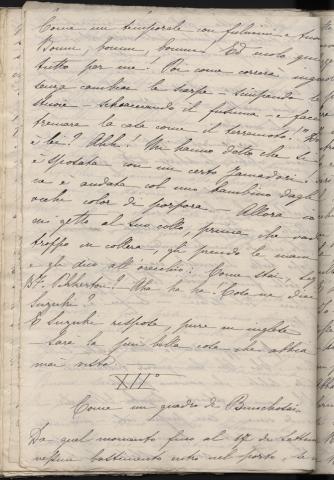 Come un temporale con fulmini e tuoni
Boum, boum, boum. Ed molo
tutto per me! Poi come correrà
senza cambiar le scarpe – sciupando le
stuoie – schiacciando il fusuma – e facen
tremare la casa come il terremoto!
è lei? Ahh! Mi hanno detto che si
è sposata con un certo Yamadori!
ca è andata col suo bambino dagli
occhi color di porpora – Allora
mi getto al suo collo, prima che vada
troppo in collera, gli prendo le mani
e gli dico all'orecchio: Come stai,
Bf. Pinkerton! Aha ha ha. Cosa ne dici
Suzuki?
E Suzuki rispose, pure in inglese
– Sarà la più bella cosa che abbia
mai visto
XII°
Come un quadro di
Da quel momento fino al 17 di Settem
nessun bastimento entrò nel porto,